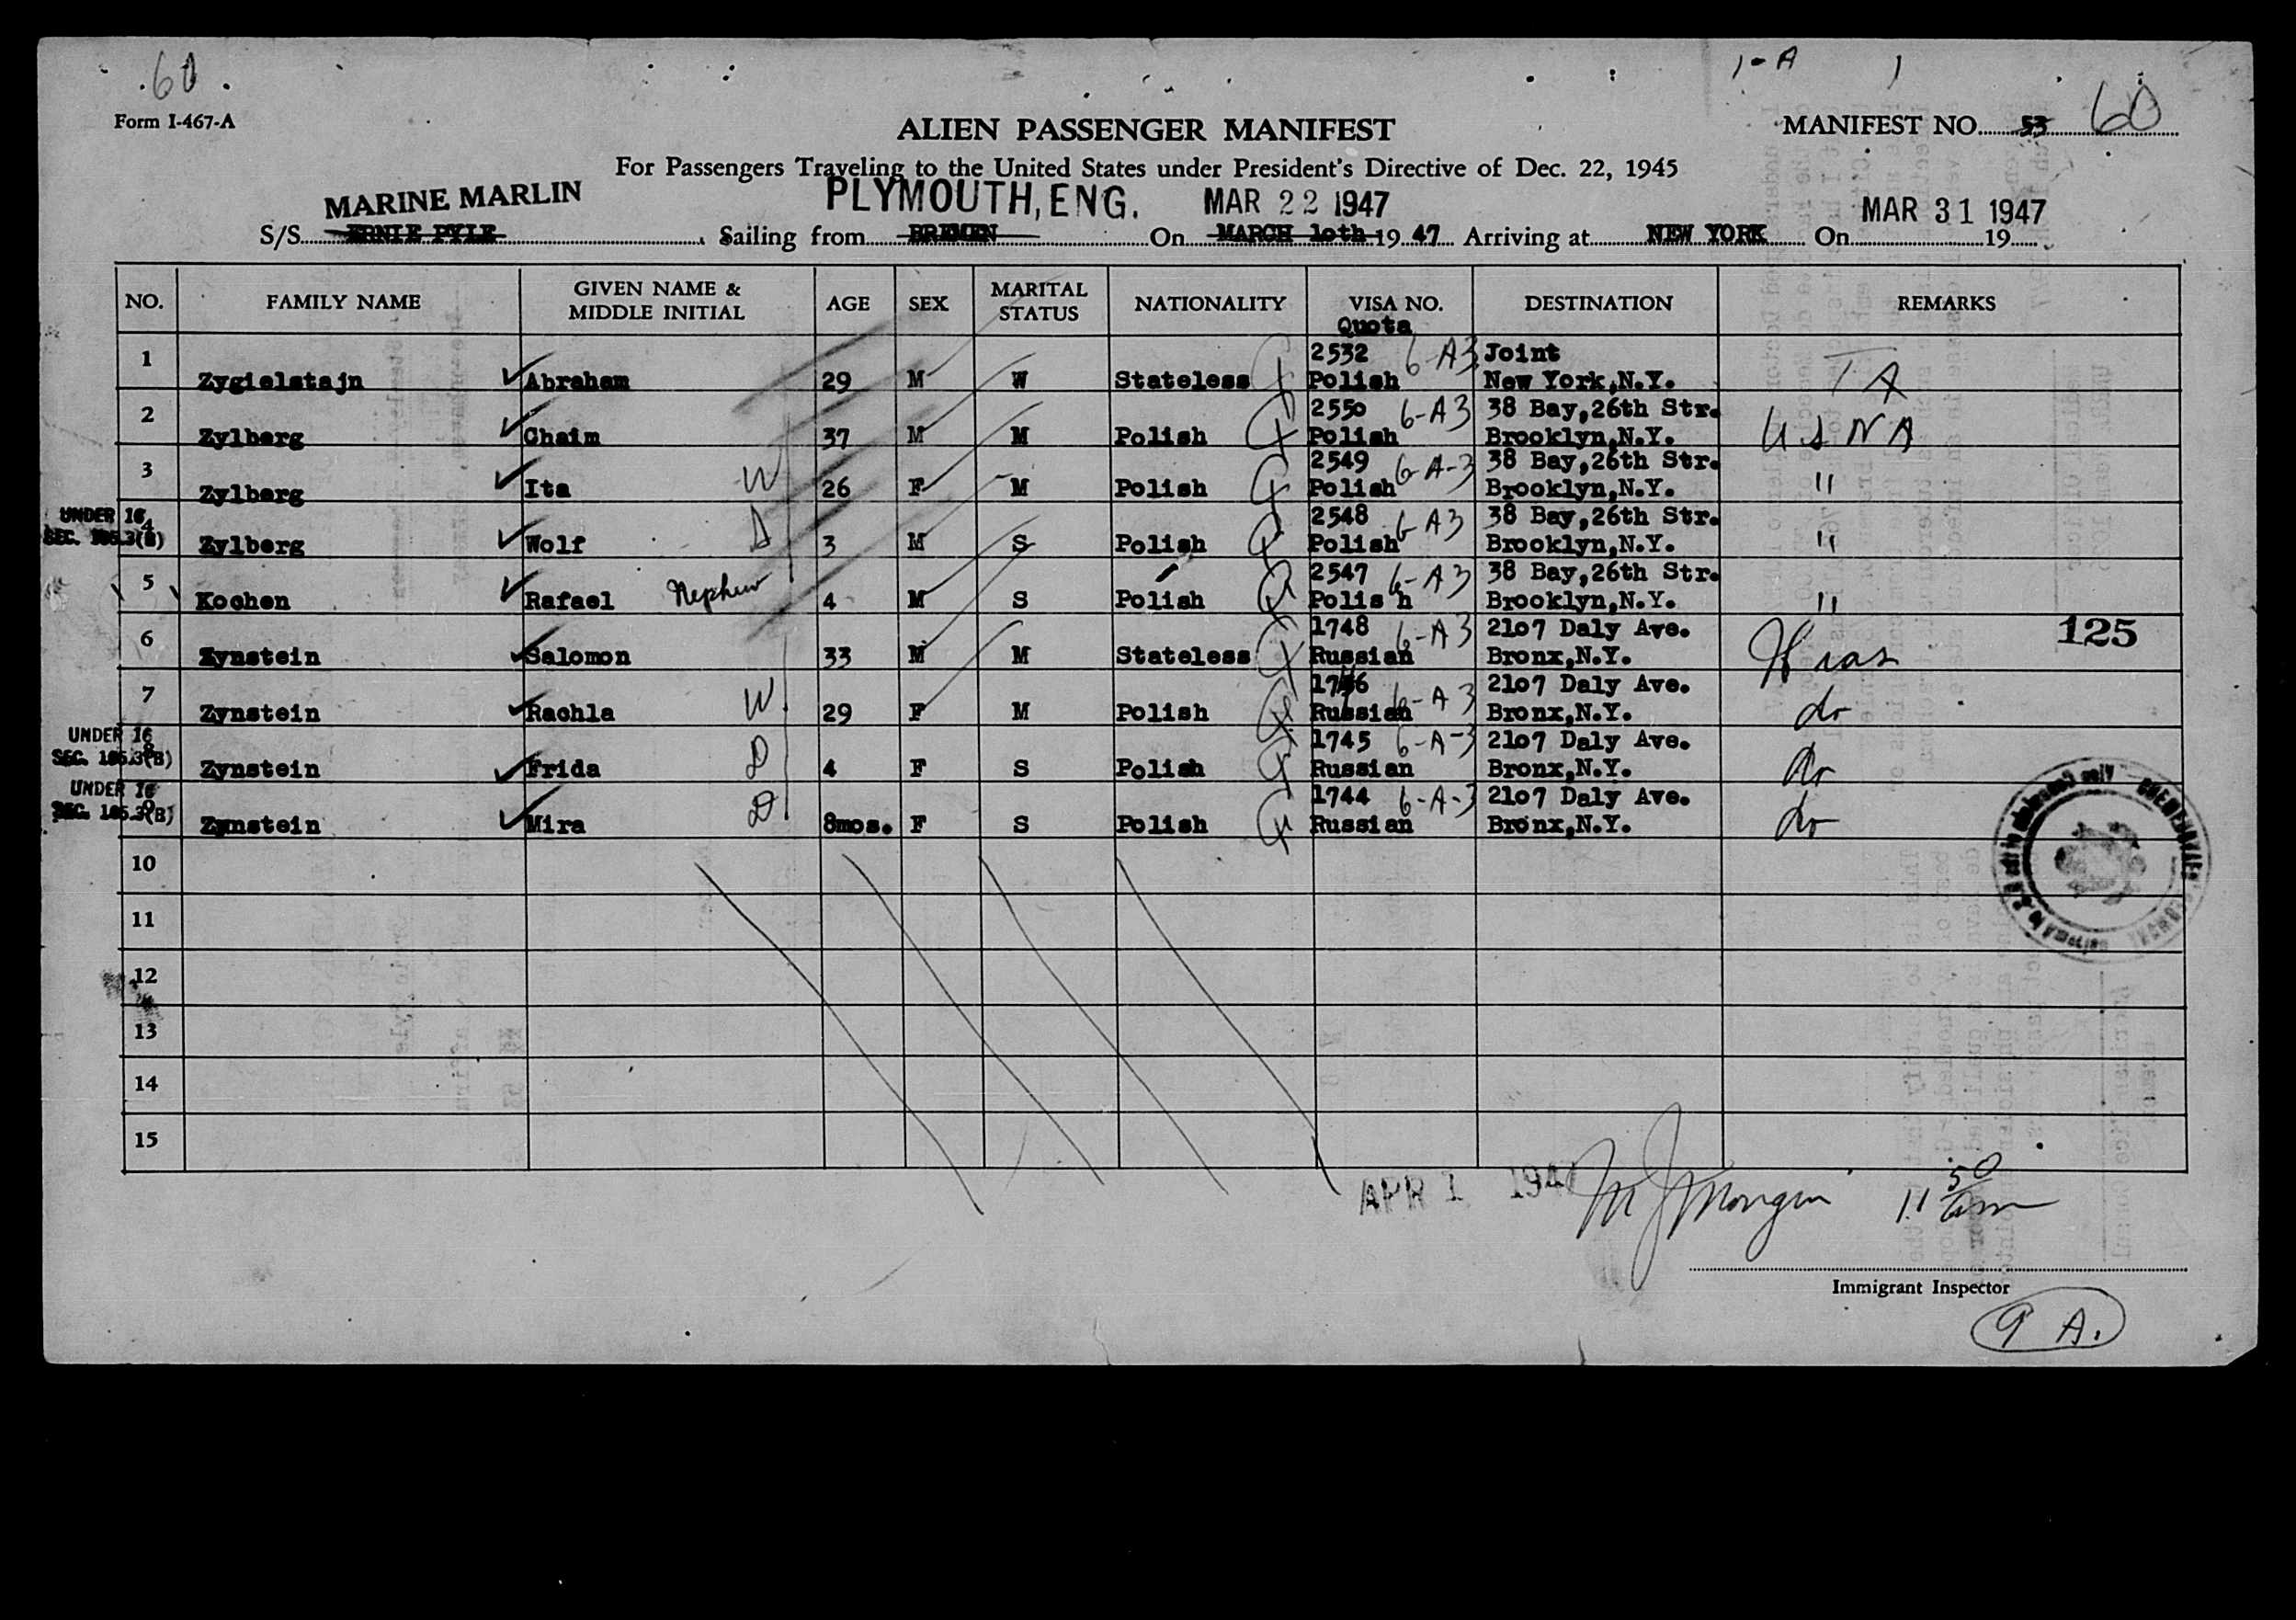 60
1-A
Form I-467-A
ALIEN PASSENGER MANIFEST
MANIFEST NO. 53 60
For Passengers Traveling to the United States under President's Directive of Dec. 22, 1945
MARINE MARLIN PLYMOUTH, ENG. MAR 22 1947 MAR 31 1947
S/S ERNIE PYLE Sailing from BREMEN On MARCH 10th 19 47 Arriving at NEW YORK On 19
NO. FAMILY NAME GIVEN NAME & MIDDLE INITIAL AGE SEX MARITAL STATUS NATIONALITY VISA NO. DESTINATION REMARKS
Quota
1 Zygielstajn Abraham 29 M W Stateless 2532 6-A3 Polish Joint New York,N.Y. T A
2 Zylberg Chaim 37 M M Polish 2550 6-A3 Polish 38 Bay,26th Str. Brooklyn,N.Y. USNA
3 Zylberg Ita W 26 F M Polish 2549 6-A-3 Polish 38 Bay,26th Str. Brooklyn,N.Y. "
UNDER 16 SEC. 105.3(B)
4 Zylberg Wolf 3 M S Polish 2548 6-A3 Polish 38 Bay,26th Str. Brooklyn,N.Y. "
5 Kochen Rafael Nephew 4 M S Polish 2547 6-A3 Polis h 38 Bay,26th Str. Brooklyn,N.Y. "
6 Zynstein Salomon 33 M M Stateless 1748 6-A3 Russian 2107 Daly Ave. Bronx,N.Y. Hias 125
7 Zynstein Rachla W 29 F M Polish 1746 6-A3 Russian 2107 Daly Ave. Bronx,N.Y. do
UNDER 16 SEC. 105.3(B)
8 Zynstein Frida D 4 F S Polish 1745 6-A-3 Russian 2107 Daly Ave. Bronx,N.Y. do
UNDER 16 SEC. 105.3(B)
9 Zynstein Mira D 8mos. F S Polish 1744 6-A-3 Russian 2107 Daly Ave. Bronx,N.Y. do
10
11
12
13
14
15
APR 1 1947
11 50 am
Immigrant Inspector
9 A.